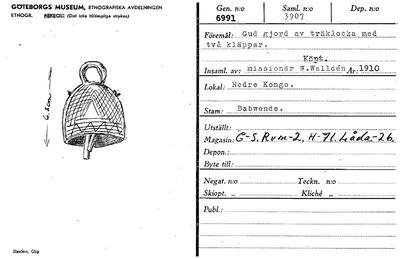 GÖTEBORGS MUSEUM, ETNOGRAFISKA AVDELNINGEN
ETNOGR. ARKEOL. (Det icke tillämpliga strykes)
6,5 cm
Elanders, Gbg
Gen. n:o Saml. n:o Dep. n:o
6991 3907
Föremål: Gud gjord av träklocka med
två kläppar.
Köpt.
Insaml. av: missionär W.Walldén År: 1910
Lokal: Nedre Kongo.
Stam: Babwende.
Utställt:
Magasin: C-S. Rum-2. H-71. Låda-26.
Depon.:
Byte till:
Negat. n:o Teckn. n:o
Skiopt. „ Kliché „
Publ.: